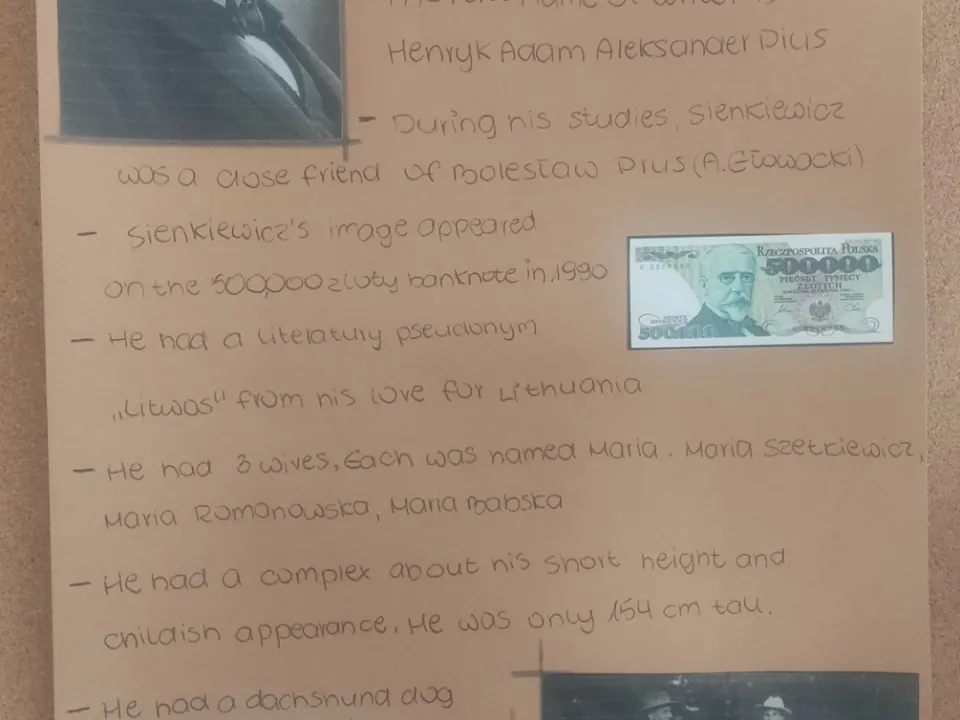 Henryk Adam Aleksander Pius
- During his studies, Sienkiewicz
was a close friend of Bolesław Prus (A.Głowacki)
- Sienkiewicz's image appeared
on the 500,000 zloty banknote in 1990
RZECZPOSPOLITA POLSKA
500000
PIĘĆSET TYSIĘCY
ZŁOTYCH
500000
- He had a literatury pseudonym
„Litwos" from his love for Lithuania
- He had 3 wives. Each was named Maria. Maria Szetkiewicz,
Maria Romanowska, Maria Babska
- He had a complex about his short height and
childish appearance. He was only 154 cm tall.
- He had a dachshund dog